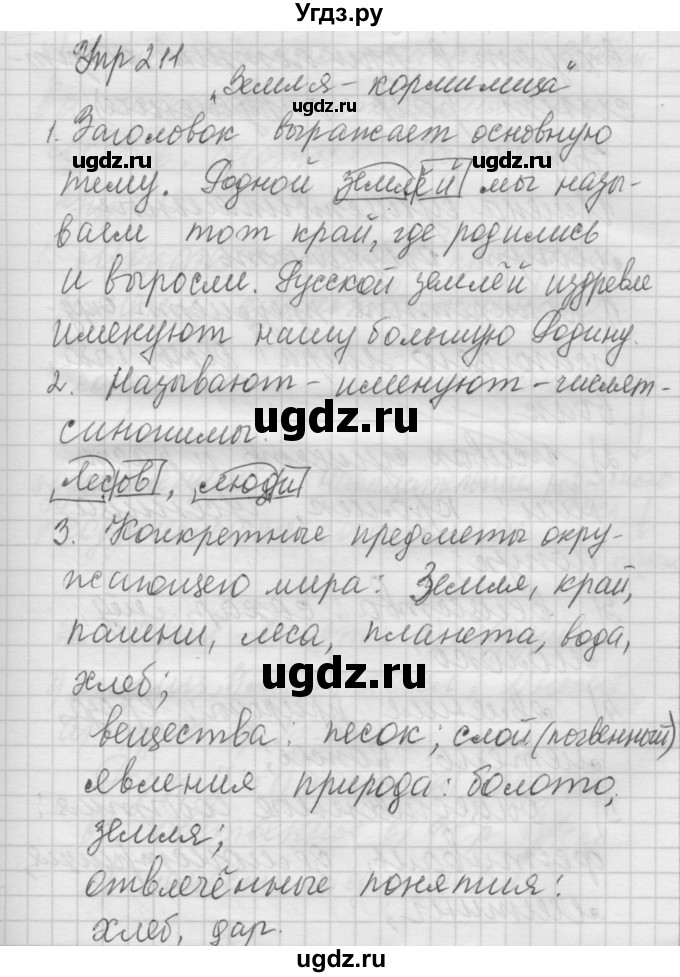 Угdz.ру
Упр 211
„Земля - кормилица"
ugdz.ru
1. Заголовок выражает основную
ugdz.ru ugdz.ru
тему. Родной землёй мы назы-
ваем тот край, где родились
и выросли. Русской землёй издревле
именуют нашу большую Родину.
2. Называют - именуют - числят -
ugdz.ru
синонимы.
лесов, люди
3. Конкретные предметы окру-
жающего мира: Земля, край,
пашни, леса, планета, вода,
ugdz.ru
хлеб;
вещества: песок; слой (почвенный)
явления природа: болото,
земля;
отвлечённые понятия:
хлеб, дар.
ugdz.ru